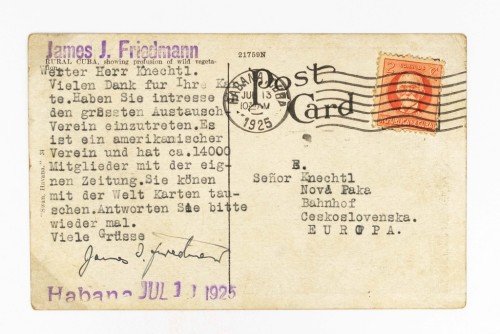 James J. Friedmann
RURAL CUBA, showing profusion of wild vegeta-
Werter Herr Knechtl.
Vielen Dank fur Ihre
te.Haben Sie intresse
den grössten Austausch
Verein einzutreten.Es
ist ein amerikanischer
Verein und hat ca.14000
Mitglieder mit der eig-
nen Zeitung.Sie könen
mit der Welt Karten tau-
schen.Antworten Sie bitte
wieder mal.
Viele Grüsse
James J. Friedmann
Habana JUL 13 1925
21759N
Post
Card
HABANA, CUBA
JUL 13
1925
E.
Señor Knechtl
Nová Paka
Bahnhof
Ceskoslovenska.
EUROPA.